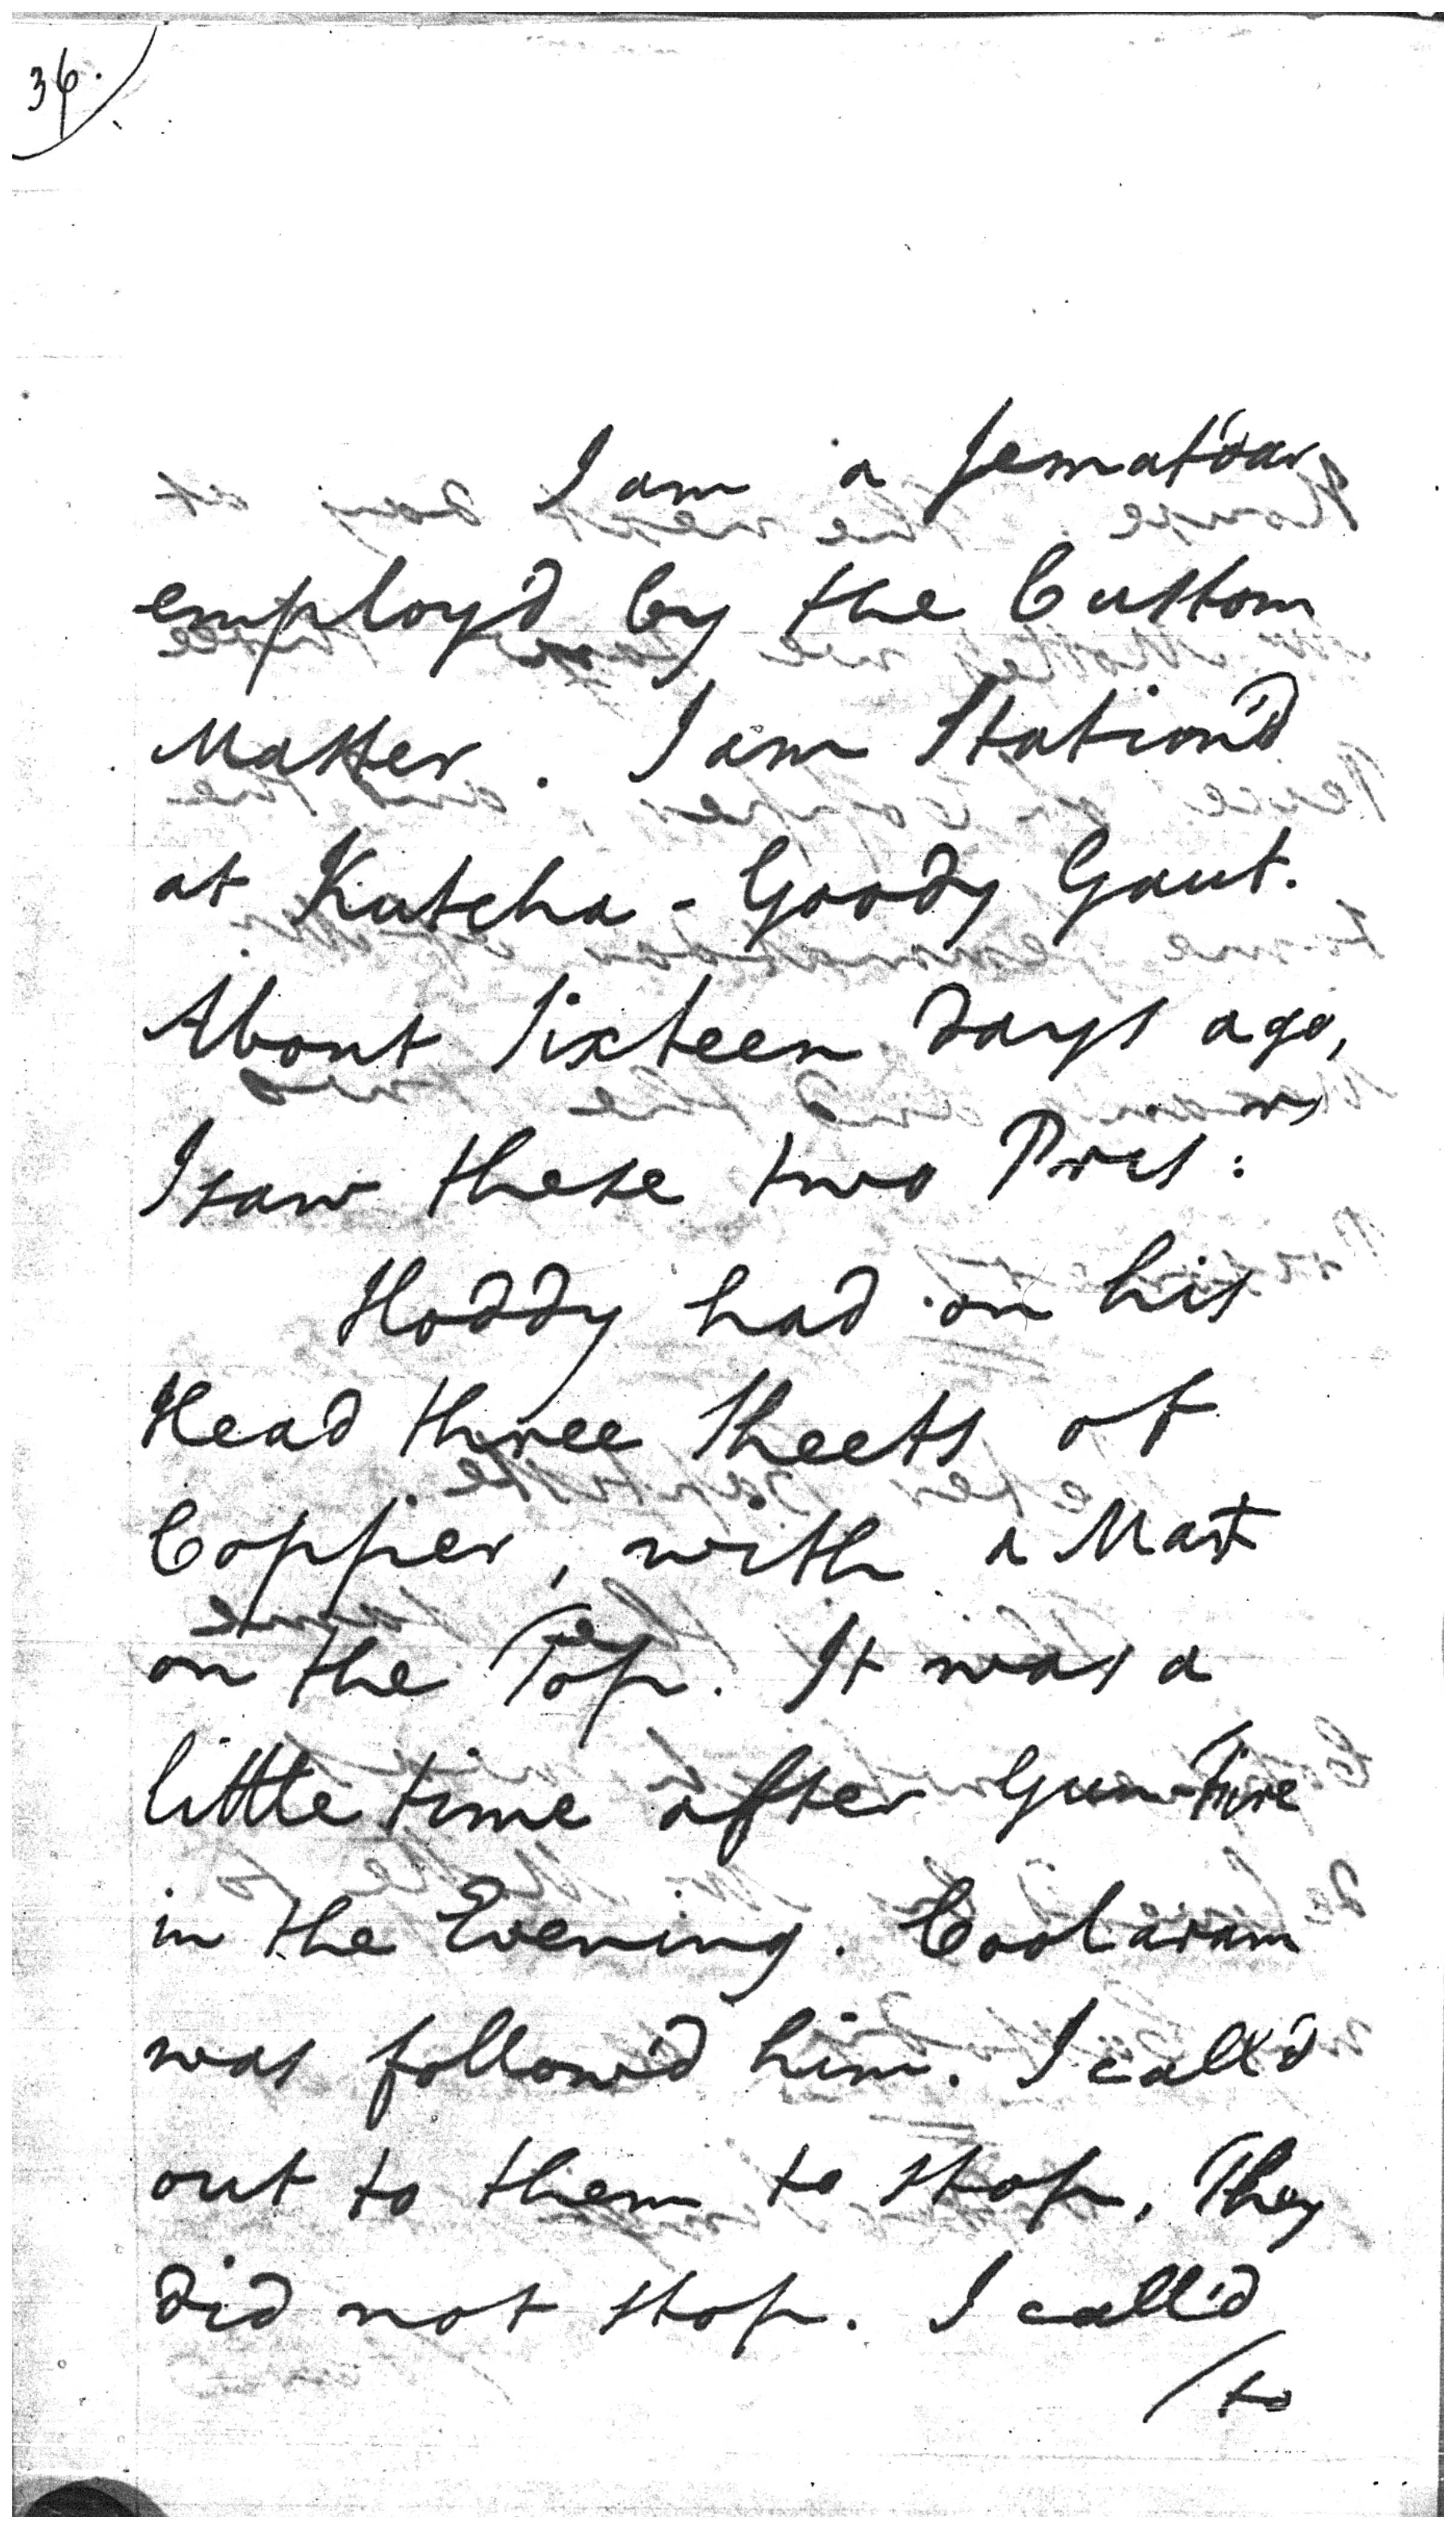 36.
I am a Jematdar
employ'd by the Custom
Master. I am Station'd
at Kutcha-Goody Gaut.
About Sixteen Days ago,
I saw these two Pris:rs
Hoddy had on his
Head three Sheets of
Copper, with a Mat
on the Top. It was a
little time after Gun-Fire
in the Evening. Coolaram
was follow'd him. I call'd
out to them to stop, They
did not stop. I call'd
/to